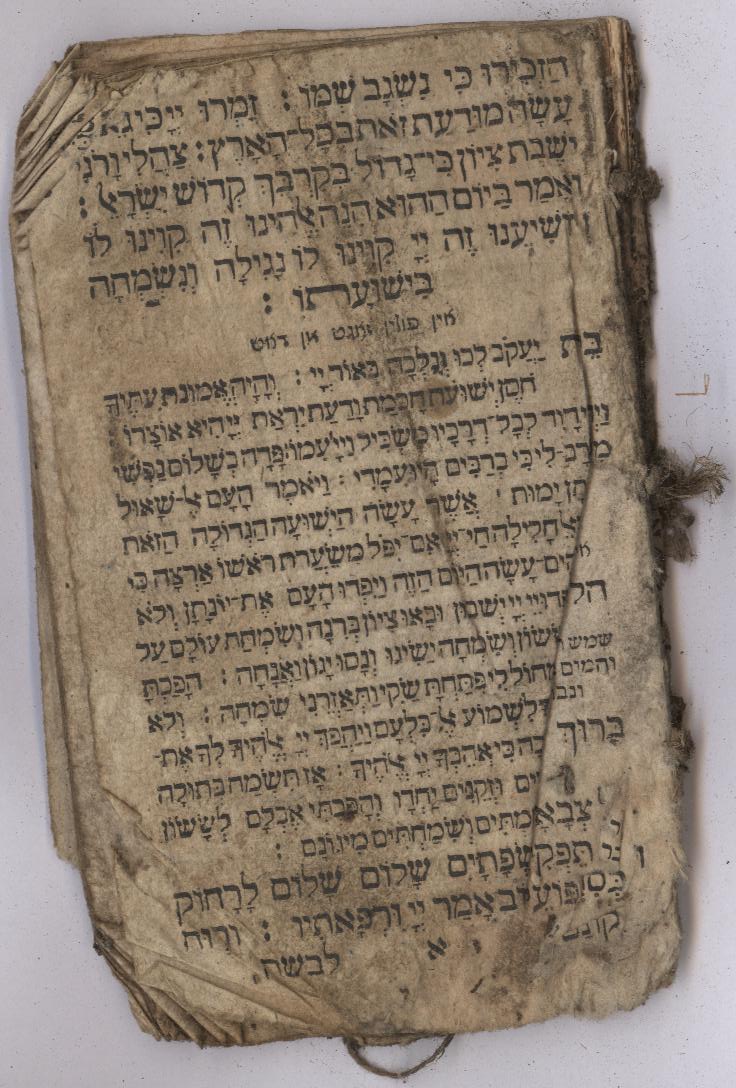 הַזְכִּירוּ כִּי נִשְׂגָּב שְׁמוֹ : זַמְּרוּ יְיָ כִּי גֵאוּת
עָשָׂה מוּדַעַת זֹאת בְּכָל־הָאָרֶץ : צַהֲלִי וָרֹנִּי
יֹשֶׁבֶת צִיּוֹן כִּי־גָדוֹל בְּקִרְבֵּךְ קְדוֹשׁ יִשְׂרָאֵל :
וְאָמַר בַּיּוֹם הַהוּא הִנֵּה אֱלֹהֵינוּ זֶה קִוִּינוּ לוֹ
וְיוֹשִׁיעֵנוּ זֶה יְיָ קִוִּינוּ לוֹ נָגִילָה וְנִשְׂמְחָה
בִּישׁוּעָתוֹ :
אין פולין זאגט אן דאש
בֵּית יַעֲקֹב לְכוּ וְנֵלְכָה בְּאוֹר יְיָ : וְהָיָה אֱמוּנַת עִתֶּיךָ
חֹסֶן יְשׁוּעֹת חָכְמַת וָדָעַת יִרְאַת יְיָ הִיא אוֹצָרוֹ :
וַיְהִי דָוִד לְכָל־דְּרָכָיו מַשְׂכִּיל וַיְיָ עִמּוֹ פָּדָה בְשָׁלוֹם נַפְשִׁי
מִקְּרָב־לִי כִּי בְרַבִּים הָיוּ עִמָּדִי : וַיֹּאמֶר הָעָם אֶל־שָׁאוּל
יָמוּת אֲשֶׁר עָשָׂה הַיְשׁוּעָה הַגְּדוֹלָה הַזֹּאת
חָלִילָה חַי־יְיָ אִם־יִפֹּל מִשַּׂעֲרַת רֹאשׁוֹ אַרְצָה כִּי
עָשָׂה הַיּוֹם הַזֶּה וַיִּפְדּוּ הָעָם אֶת־יוֹנָתָן וְלֹא
יְיָ יְשֻׁבוּן וּבָאוּ צִיּוֹן בְּרִנָּה וְשִׂמְחַת עוֹלָם עַל
שָׂשׂוֹן וְשִׂמְחָה יַשִּׂיגוּ וְנָסוּ יָגוֹן וַאֲנָחָה : הָפַכְתָּ
מָחוֹל לִי פִּתַּחְתָּ שַׂקִּי וַתְּאַזְּרֵנִי שִׂמְחָה : וְלֹא
לִשְׁמוֹעַ אֶל־בִּלְעָם וַיַּהֲפֹךְ יְיָ אֱלֹהֶיךָ לְּךָ אֶת־
כִּי אֲהֵבְךָ יְיָ אֱלֹהֶיךָ : אָז תִּשְׂמַח בְּתוּלָה
וּזְקֵנִים יַחְדָּו וְהָפַכְתִּי אֶבְלָם לְשָׂשׂוֹן
וְנִחַמְתִּים וְשִׂמַּחְתִּים מִיגוֹנָם :
שְׂפָתָיִם שָׁלוֹם שָׁלוֹם לָרָחוֹק
אָמַר יְיָ וּרְפָאתִיו : וְרוּחַ
לבשה
שמש
והמים
ונב
בָּרוּךְ